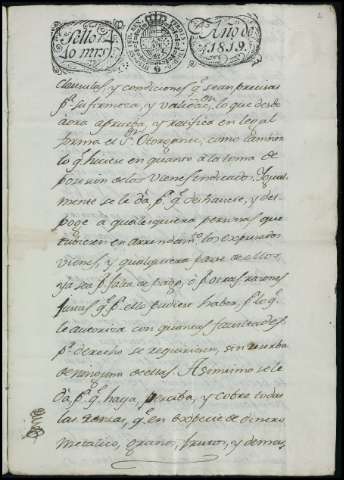 2
Sello 4.º 40 mrs
Año de 1819.
clausulas, y condiciones q.e sean precisas
p.a su firmeza, y validac.on, lo que desde
aora aprueba, y ratifica en legal
forma el S.or Otorgante, como tambien
lo q.e hiciese en quanto a la toma de
posesion de los Vienes indicados. Igual
mente se le da p.a q.e deshaucie, y des
poge a qualesquiera personas que
tubiesen en arrendam.to los expresados
vienes, y qualquiera parte de ellos,
ya sea p.r falta de pago, ó p.r otras razones
justas q.e p.a ello pudiese haber p.s lo q.e
le autoriza con quantas facultades
p.r derecho se requieran, sin reserba
de ninguna de ellas. Asimismo se le
da p.a q.e haya, perciba, y cobre todas
las rentas, q.e en especie de dinero
metalico, granos, frutos, y demas